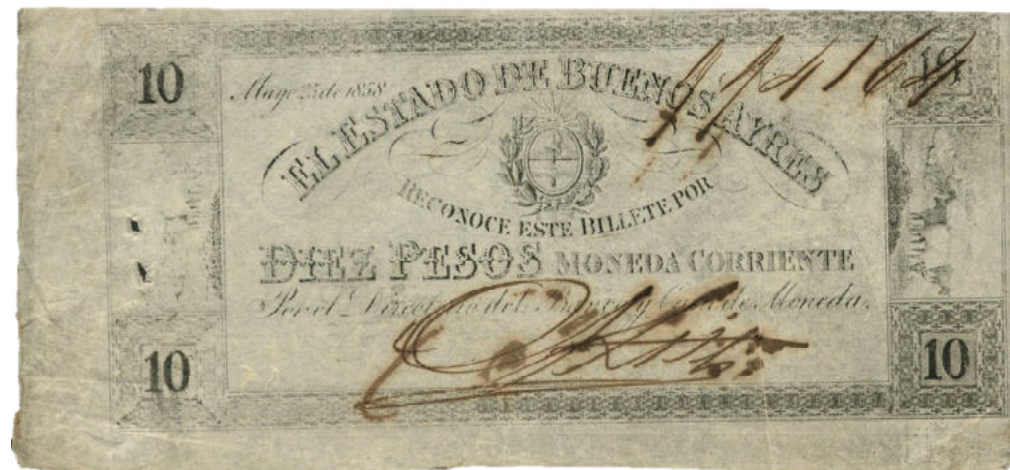 10
Mayo 25 de 1858
10
EL ESTADO DE BUENOS AYRES
RECONOCE ESTE BILLETE POR
DIEZ PESOS MONEDA CORRIENTE
Por el Directorio del Banco y Casa de Moneda.
10
10